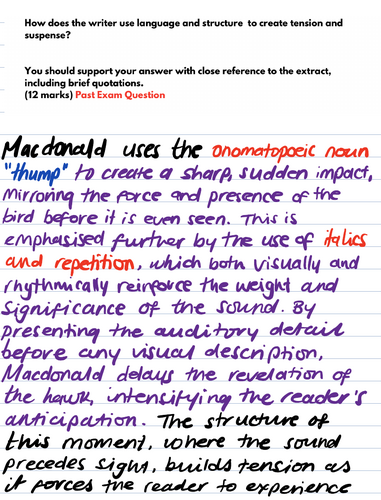 How does the writer use language and structure to create tension and
suspense?
You should support your answer with close reference to the extract,
including brief quotations.
(12 marks) Past Exam Question
Macdonald uses the onomatopoeic noun
"thump" to create a sharp, sudden impact,
mirroring the force and presence of the
bird before it is even seen. This is
emphasised further by the use of italics
and repetition, which both visually and
rhythmically reinforce the weight and
significance of the sound. By
presenting the auditory detail
before any visual description,
Macdonald delays the revelation of
the hawk, intensifying the reader's
anticipation. The structure of
this moment, where the sound
precedes sight, builds tension as
it forces the reader to experience